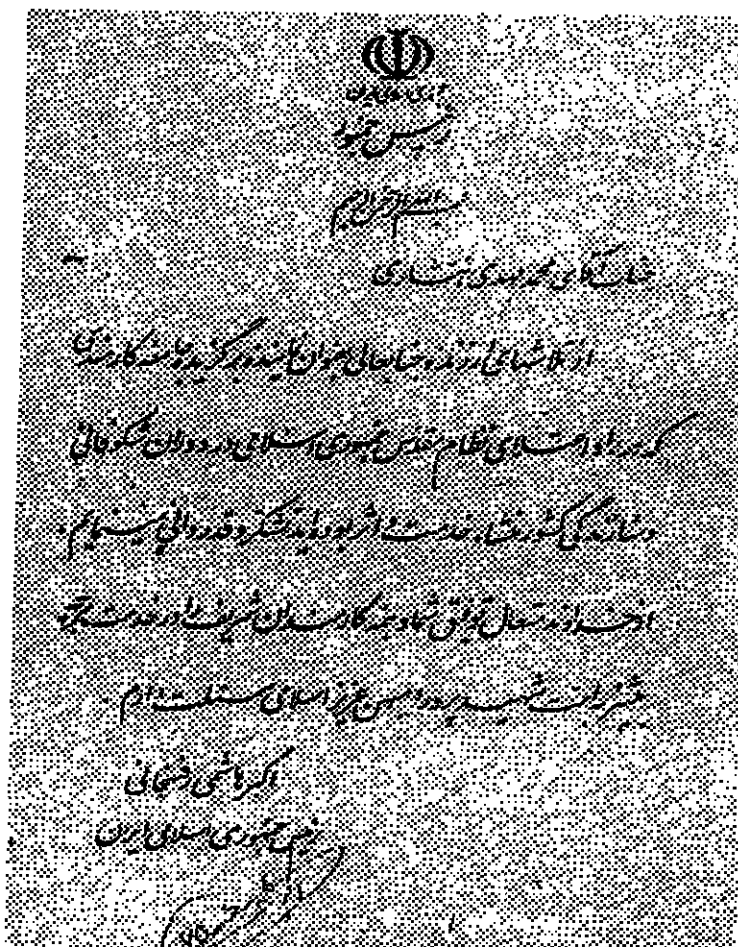 جمهوری اسلامی ایران
رئیس جمهور
بسم الله الرحمن الرحیم
جناب آقای محمد مهدی
از تلاشهای ارزنده جنابعالی بعنوان نماینده برگزیده جامعه کارمندی
که در راه اعتلای نظام مقدس جمهوری اسلامی در دوران شکوفائی
و سازندگی کشور منشاء خدمت و اثر بوده‌اید تشکر و قدردانی مینمایم.
از خداوند متعال توفیق شما و همه کارمندان شریف را در خدمت هرچه
بیشتر به امت شهید پرور و میهن عزیز اسلامی مسئلت دارم.
اکبر هاشمی رفسنجانی
رئیس جمهوری اسلامی ایران